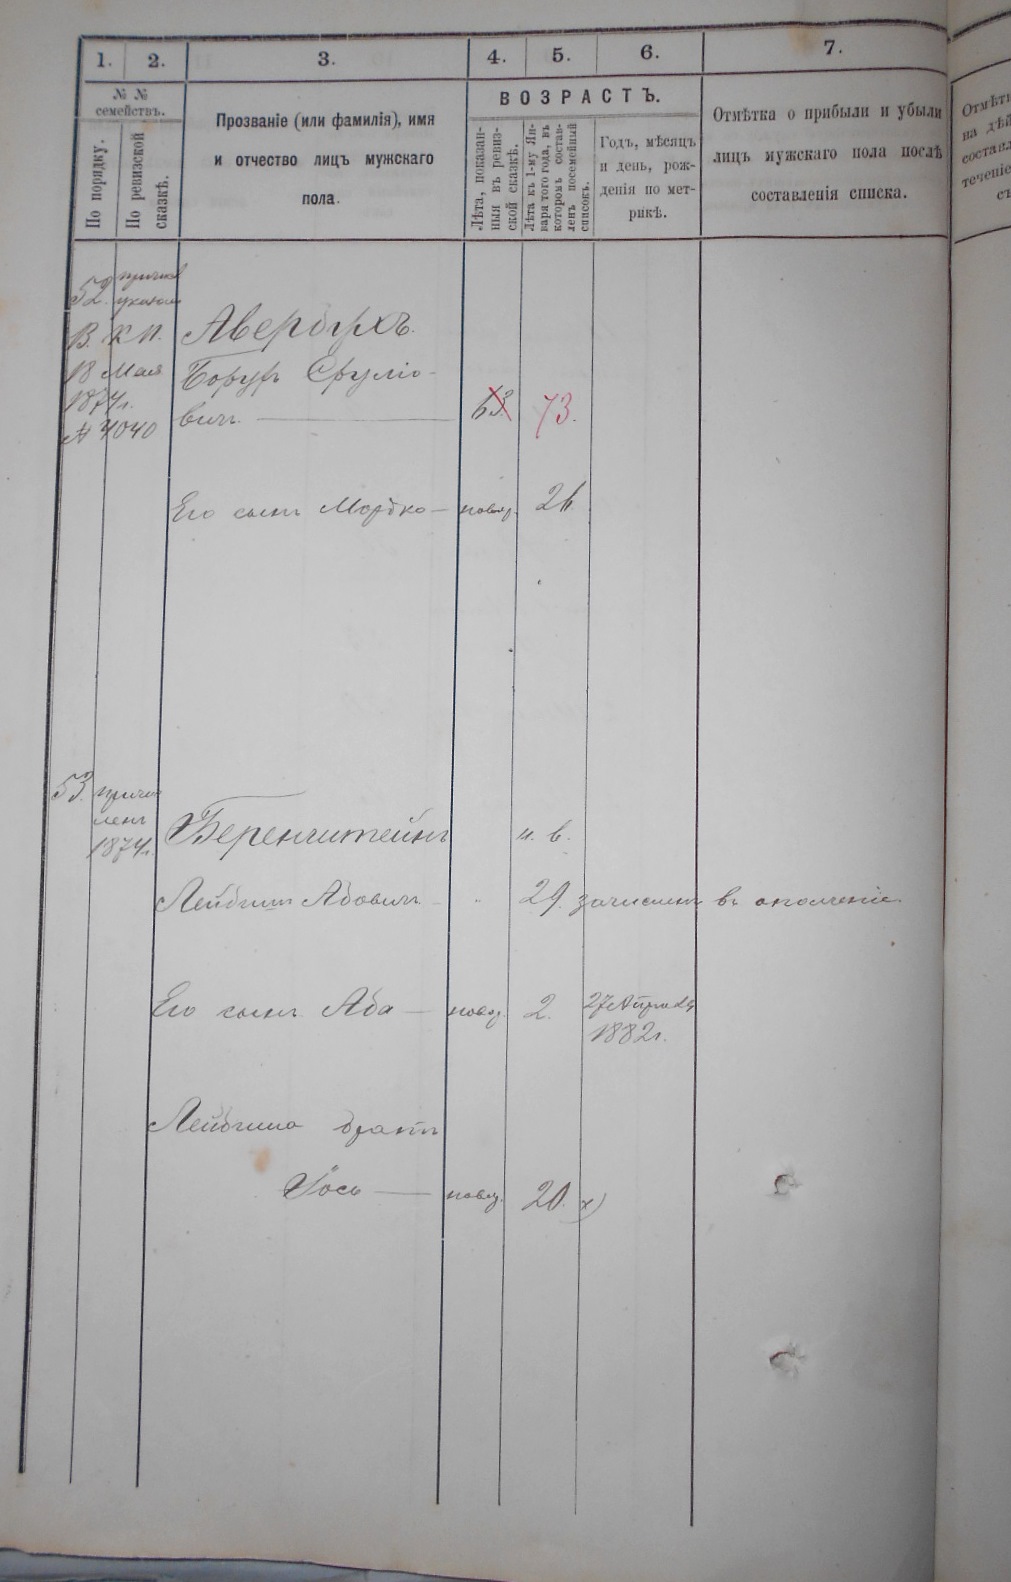 1. 2. 3. 4. 5. 6. 7.
№ №
семействъ.
По порядку.
По ревизской
сказкѣ.
Прозваніе (или фамилія), имя
и отчество лицъ мужскаго
пола.
ВОЗРАСТЪ.
Лѣта, показан-
ныя въ ревиз-
ской сказкѣ.
Лѣта къ 1-му Ян-
варя того года, въ
которомъ состав-
ленъ посемейный
списокъ.
Годъ, мѣсяцъ
и день, рож-
денія по мет-
рикѣ.
Отмѣтка о прибыли и убыли
лицъ мужскаго пола послѣ
составленія списка.
Отмѣтк
на дѣй
составл
теченіе
съ
52.
В. К. П. Авербухъ.
18 Мая Борухъ Срулiо-
1874г. 63. 73.
№ 4040 вичъ.
Его сынъ Мордко — новор. 26
53. причи
ленъ
1874г. Беренштейнъ н. в.
Лейбишъ Абовичъ 29. зачисленъ въ ополченіе.
Его сынъ Аба — новор. 2. 27 Апреля
1882г.
Лейбиша братъ
Іось — новор. 20. х)